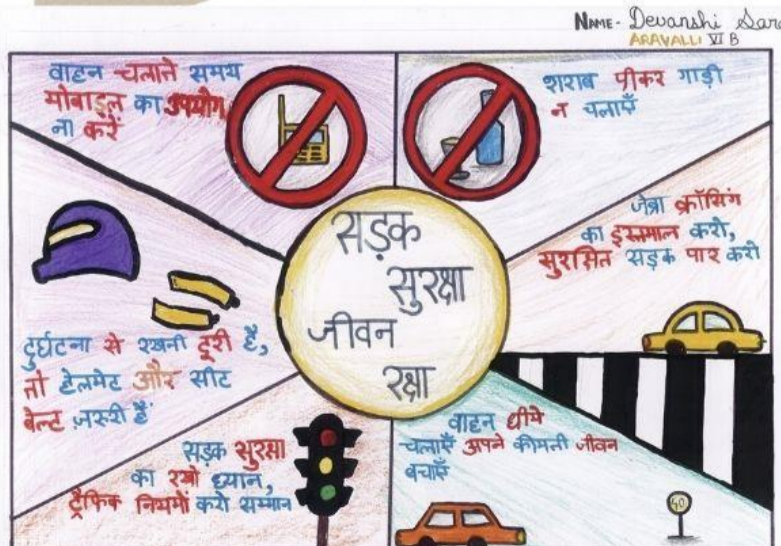 NAME- Devanshi Sara
ARAVALLI VI B
वाहन चलाते समय
मोबाइल का उपयोग
ना करें
शराब पीकर गाड़ी
न चलाएँ
जेब्रा क्रॉसिंग
का इस्तमाल करो,
सुरक्षित सड़क पार करो
सड़क
सुरक्षा
जीवन
रक्षा
दुर्घटना से रखनी दूरी है,
तो हेलमेट और सीट
बेल्ट ज़रूरी हैं
सड़क सुरक्षा
का रखो ध्यान,
ट्रैफिक नियमों करो सम्मान
वाहन धीमे
चलाएँ अपने कीमती जीवन
बचाएँ
40